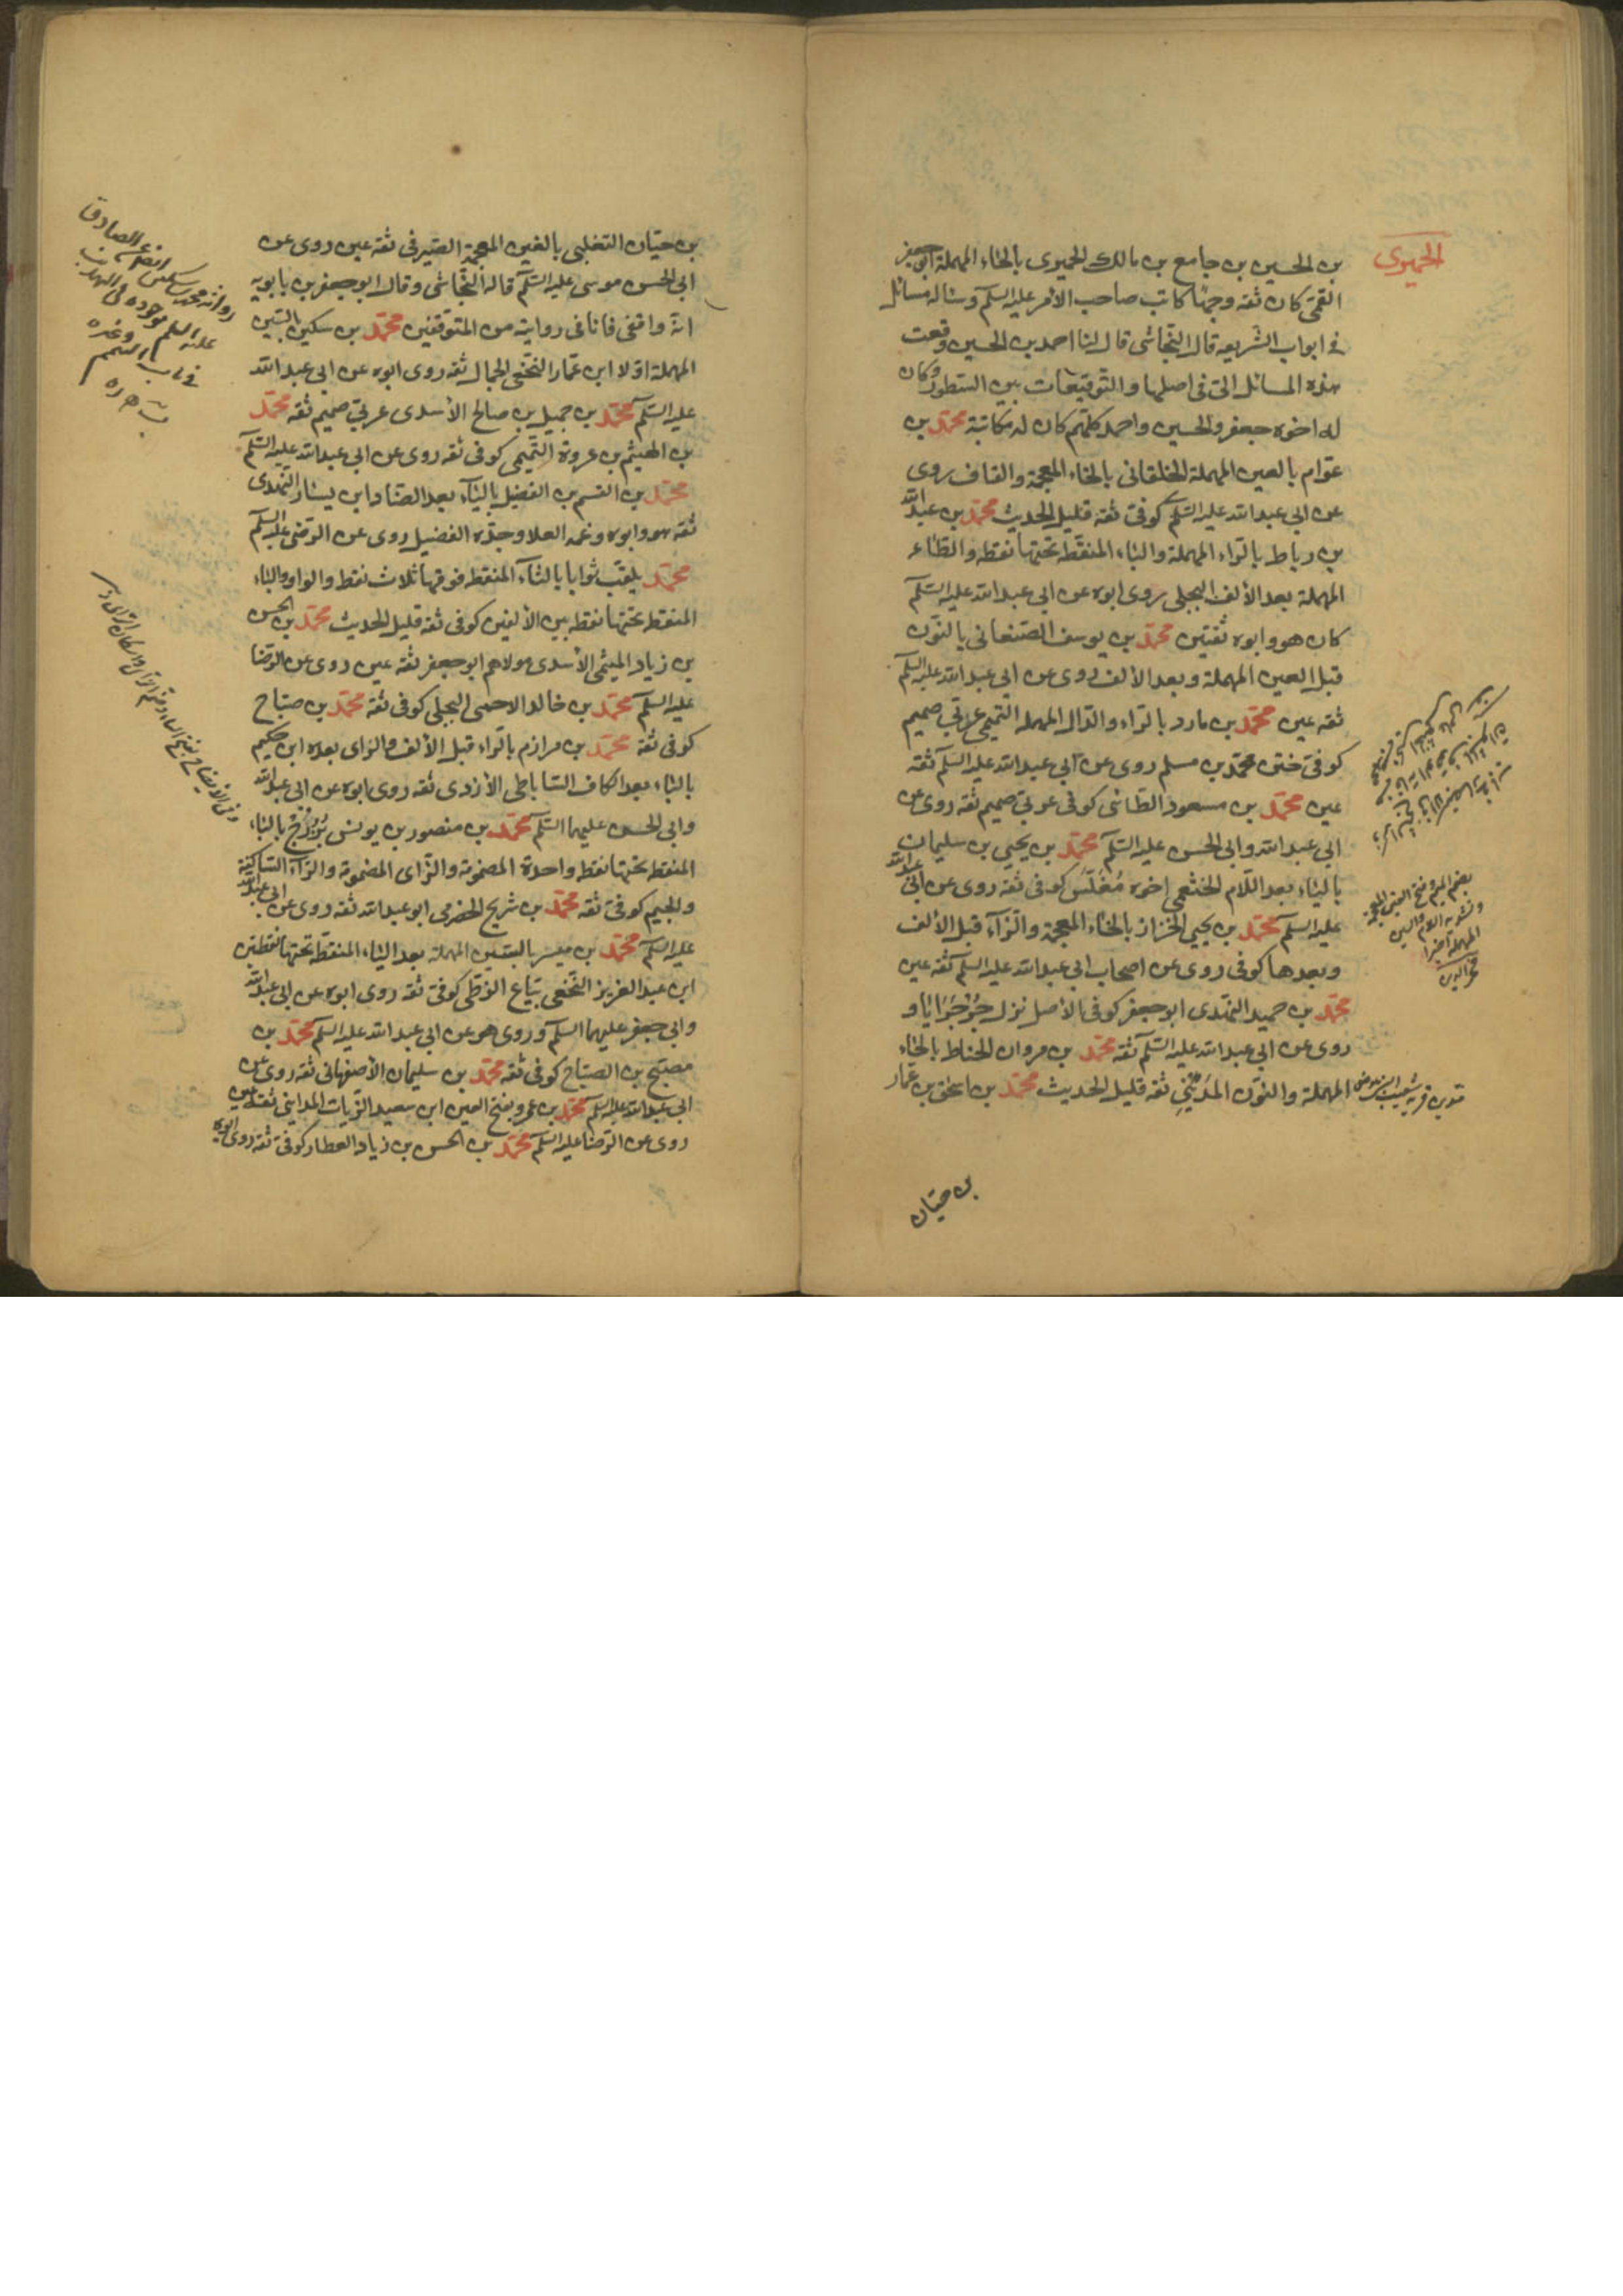 الحميري
بن الحسين بن جامع بن مالك الحميري بالحاء المهملة ابو جعفر
القمي كان ثقه وجها كاتب صاحب الامر عليه السلم وساله مسائل
في ابواب الشريعه قال النجاشي قال لنا احمد بن الحسين وقعت
هذه المسائل الى في اصلها والتوقيعات بين السطور وكان
له اخوه جعفر والحسين واحمد كلهم كان له مكاتبة محمد بن
عوام بالعين المهملة الخلقاني بالخاء المعجمة والقاف روى
عن ابي عبد الله عليه السلم كوفي ثقه قليل الحديث محمد بن عبد الله
بن رباط بالراء المهملة والباء المنقطة تحتها نقطه والطاء
المهملة بعد الألف البجلي روى ابوه عن ابي عبد الله عليه السلم
كان هو وابوه ثقتين محمد بن يوسف الصنعاني بالنون
قبل العين المهملة وبعد الألف روى عن ابي عبد الله عليه السلم
ثقه عين محمد بن مارد بالراء والدال المهمله التميمي عربي صميم
كوفي ختن محمد بن مسلم روى عن ابي عبد الله عليه السلم ثقه
عين محمد بن مسعود الطائي كوفي عربي صميم ثقه روى عن
ابي عبد الله وابي الحسن عليه السلم محمد بن يحيى بن سليمان
بالياء بعد اللام الخثعمي اخوه مغلس كوفي ثقه روى عن ابي عبد الله
عليه السلم محمد بن يحيى الخزاز بالخاء المعجمة والزاء قبل الألف
وبعدها كوفي روى عن اصحاب ابي عبد الله عليه السلم ثقه عين
محمد بن حميد النهدي ابو جعفر كوفي الأصل نزل جرجرايا و
روى عن ابي عبد الله عليه السلم ثقه محمد بن مروان الحناط بالحاء
المهملة والنون المديني ثقه قليل الحديث محمد بن اسحق بن عمار
بضم الميم وفتح الغين المعجمة
وتشديد اللام والسين
المهملة اخيرا
فخر الدين
بن حيان
بن حيان التغلبي بالغين المعجمة الصيرفي ثقة عين روى عن
ابي الحسن موسى عليه السلم قاله النجاشي وقال ابو جعفر بن بابويه
انه واقفي فانا في روايته من المتوقفين محمد بن سكين بالسين
المهملة اولا ابن عمار النخعي الجمال ثقه روى ابوه عن ابي عبد الله
عليه السلم محمد بن جميل بن صالح الأسدي عربي صميم ثقه محمد
بن الهيثم بن عروة التميمي كوفي ثقه روى عن ابي عبد الله عليه السلم
محمد بن القسم بن الفضيل بالياء بعد الضاد ابن يسار النهدي
ثقه هو وابوه وعمه العلا وجده الفضيل روى عن الرضي عليه السلم
محمد يلقب ثوابا بالثاء المنقطه فوقها ثلاث نقط والواو والباء
المنقطه تحتها نقطه بين الألفين كوفي ثقه قليل الحديث محمد بن الحسن
بن زياد الميثمي الأسدي مولاهم ابو جعفر ثقة عين روى عن الرضا
عليه السلم محمد بن خالد الاحمسي البجلي كوفي ثقه محمد بن صباح
كوفي ثقة محمد بن مرازم بالراء قبل الألف والزاي بعده ابن حكيم
بالياء بعد الكاف الساباطي الأزدي ثقه روى ابوه عن ابي عبد الله
وابي الحسن عليهما السلم محمد بن منصور بن يونس بزرج بالباء
المنقطه تحتها نقطه واحدة المضمومة والزاي المضمومة والراء الساكنة
والجيم كوفي ثقه محمد بن شريح الحضرمي ابو عبد الله ثقه روى عن ابي عبد الله
عليه السلم محمد بن ميسر بالسين المهملة بعد الياء المنقطة تحتها نقطتين
ابن عبد العزيز النخعي بياع الزطي كوفي ثقه روى ابوه عن ابي عبد الله
وابي جعفر عليهما السلم وروى هو عن ابي عبد الله عليه السلم محمد بن
مصبح بن الصباح كوفي ثقه محمد بن سليمان الأصفهاني ثقه روى عن
ابي عبد الله عليه السلم محمد بن عمرو بفتح العين ابن سعيد الزيات المدايني ثقه عين
روى عن الرضا عليه السلم محمد بن الحسن بن زياد العطار كوفي ثقه روى ابوه